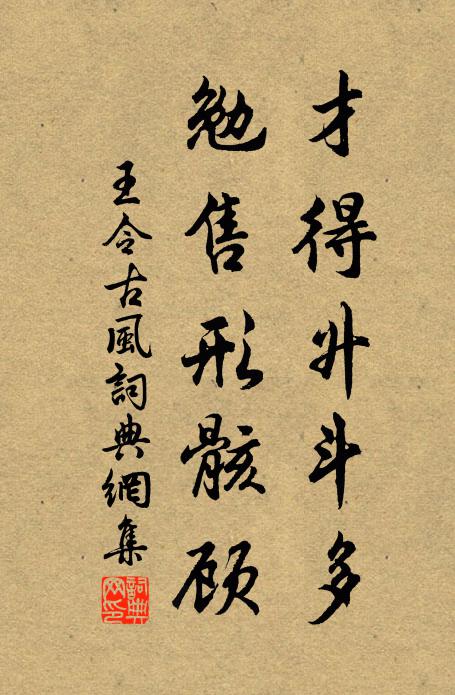 才得升斗多
勉售形骸顾
王令古風詞典網集
詞典網印